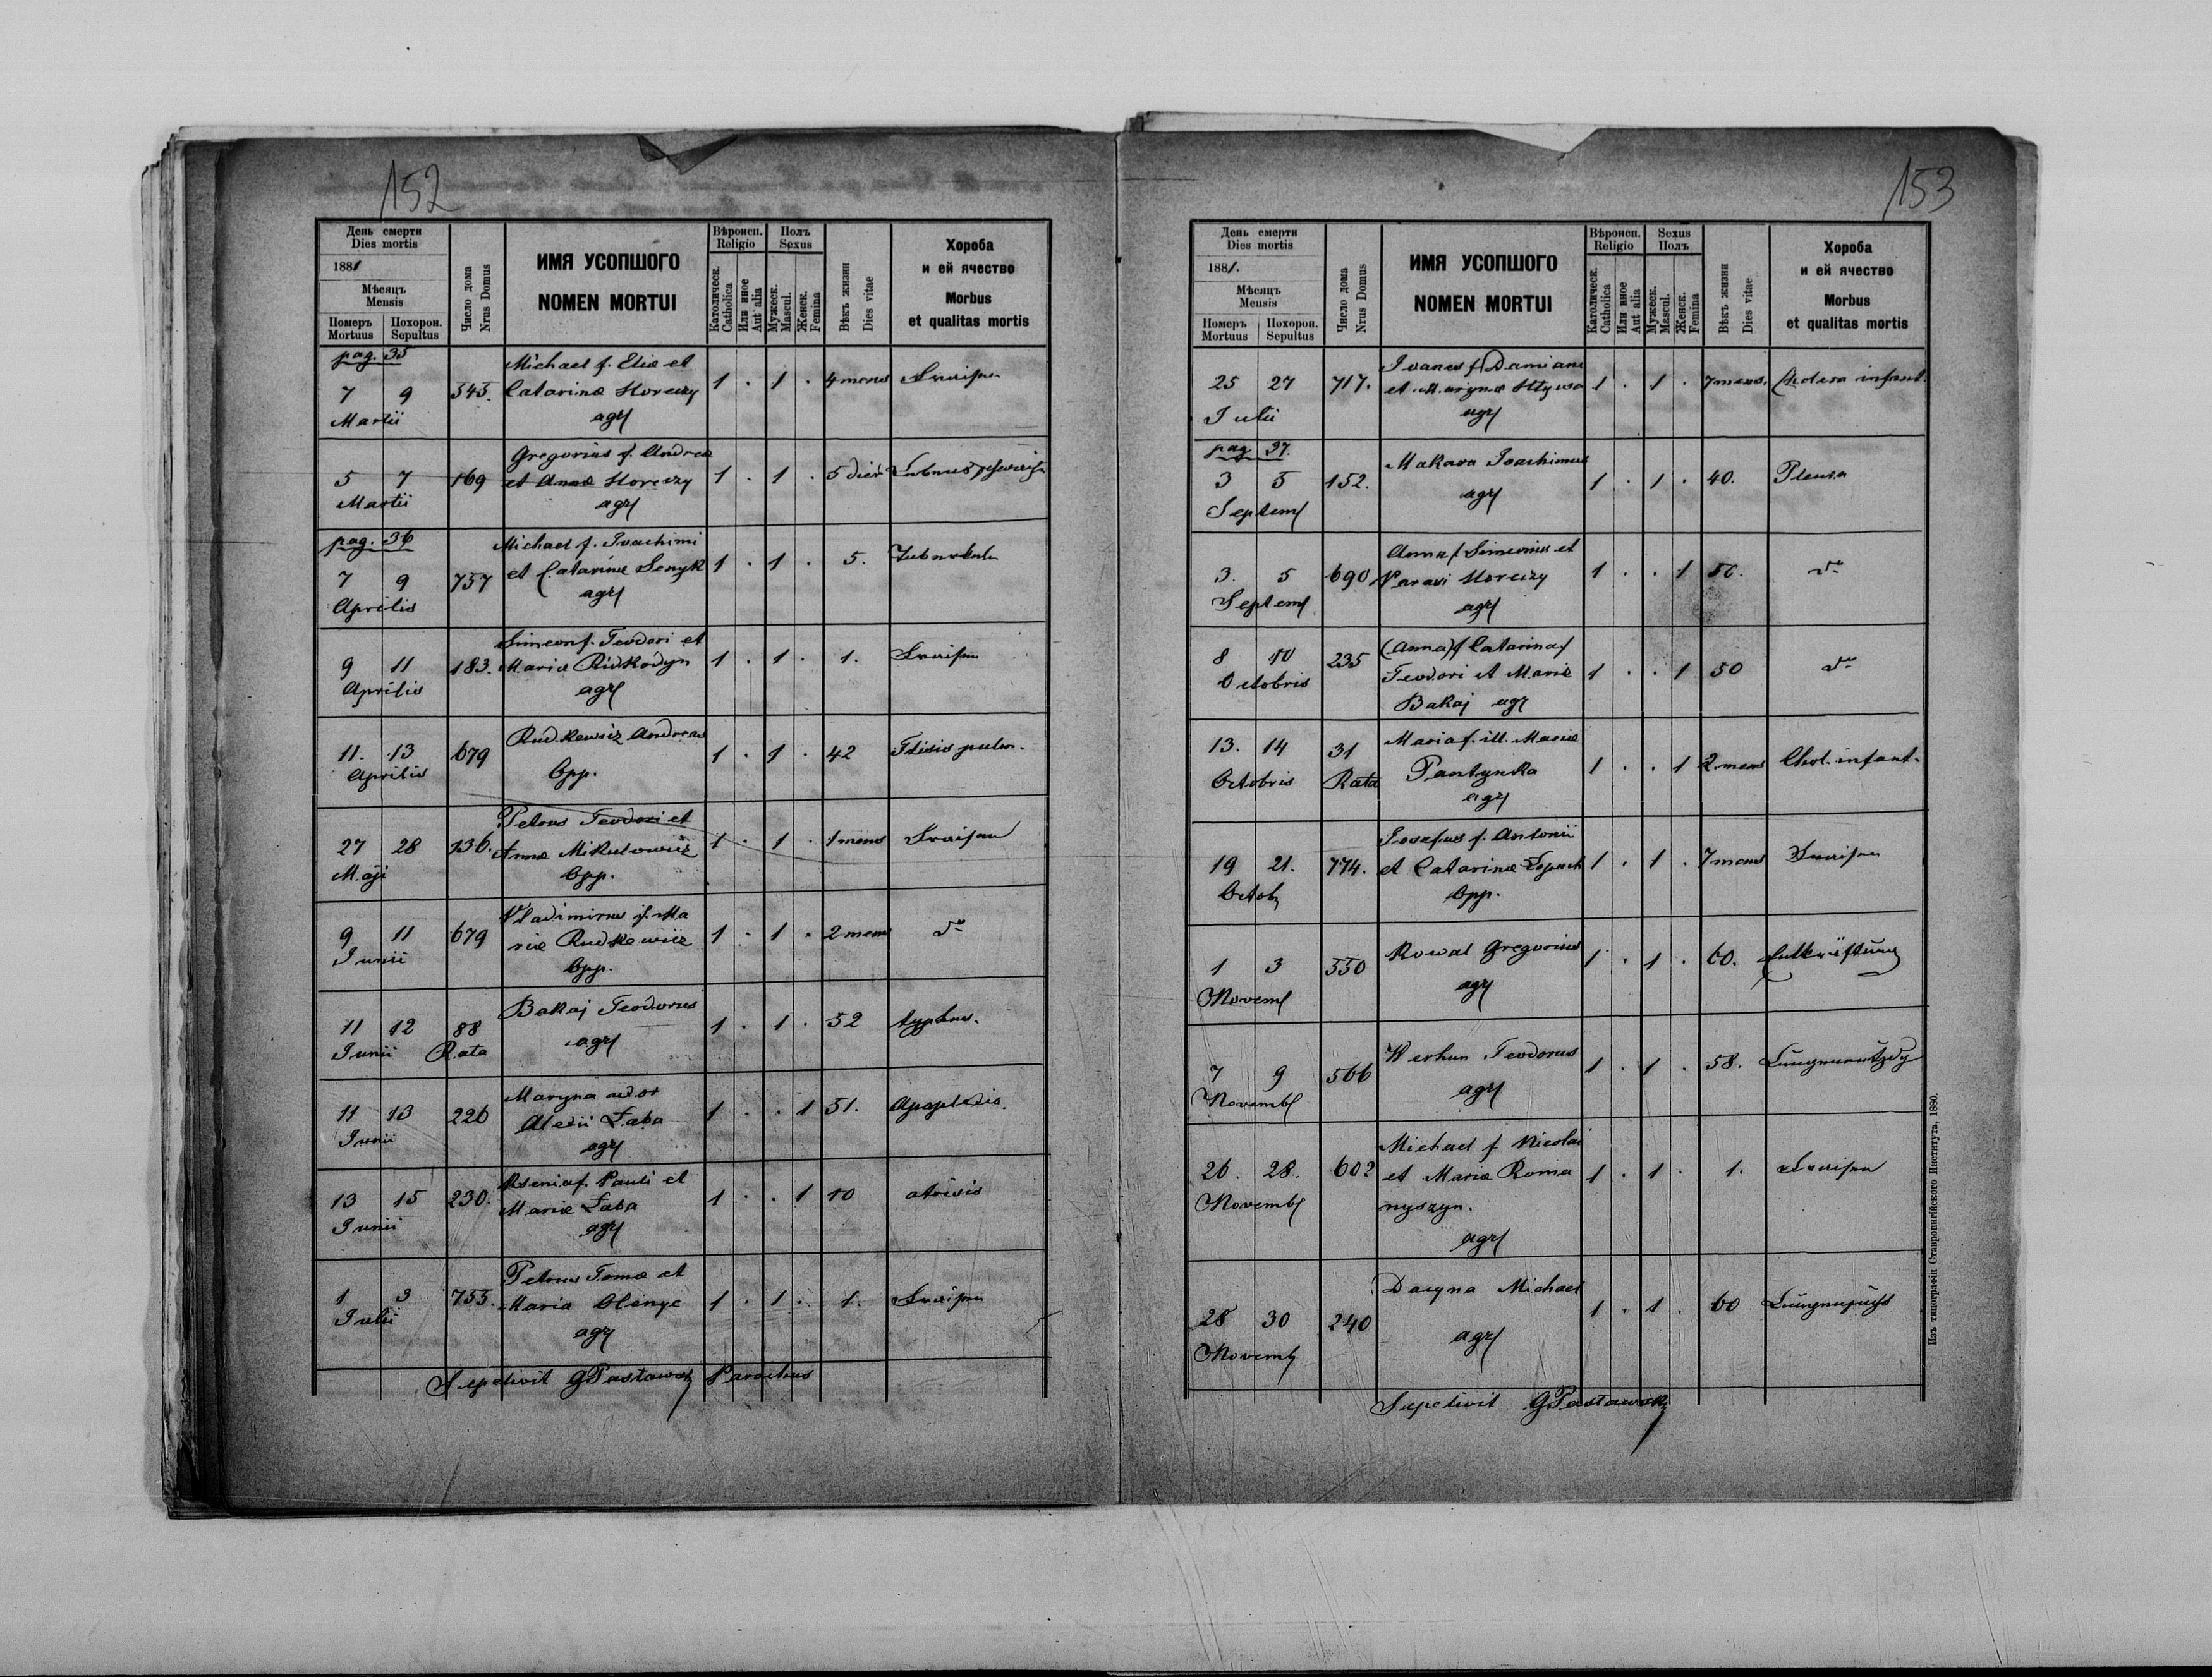 152
День смерти
Dies mortis
1881
Мѣсяцъ
Mensis
Померъ
Mortuus
Похорон.
Sepultus
Число дома
Nrus Domus
ИМЯ УСОПШОГО
NOMEN MORTUI
Вѣроисп.
Religio
Католическ.
Catholica
Или иное
Aut alia
Полъ
Sexus
Мужеск.
Mascul.
Женск.
Femina
Вѣкъ жизни
Dies vitae
Хороба
и ей ячество
Morbus
et qualitas mortis
pag. 35
Michael f. Eliæ et
7 9 343. Catarinæ Horeczy 1 . 1 . 4 mens
Martii agr
Gregorius f. Andreæ
5 7 169 et Annæ Horeczy 1 . 1 . 5 dier
Martii agr
pag. 36
Michael f. Ivachimi
7 9 757 et Catarinæ Senyk 1 . 1 . 5.
Aprilis agr
Simeon f. Teodori et
9 11 183. Mariæ Ridkodyn 1 . 1 . 1.
Aprilis agr
Rudkewicz Andreas
11. 13 679 1 . 1 . 42 Ftisis pulm.
Aprilis Opp.
Petrus Teodori et
27 28 736. Annæ Mikulowicz 1 . 1 . 1 mens
Maji Opp.
Vladimirus f. Ma
9 11 679 riæ Rudkewicz 1 . 1 . 2 mens d-
Junii Opp.
Bakaj Teodorus
11 12 88 1 . 1 . 52 typhus.
Junii Rata agr
Maryna uxor
11 13 226 Alexii Łaba 1 . . 1 51. Apoplexia.
Junii agr
Ksenia f. Pauli et
13 15 230. Mariæ Łaba 1 . . 1 10
Junii agr
Petrus Tomæ et
1 3 755. Maria 1 . 1 . 1.
Julii agr
Sepelivit GPastawski Parochus
153
День смерти
Dies mortis
1881.
Мѣсяцъ
Mensis
Померъ
Mortuus
Похорон.
Sepultus
Число дома
Nrus Domus
ИМЯ УСОПШОГО
NOMEN MORTUI
Вѣроисп.
Religio
Католическ.
Catholica
Или иное
Aut alia
Sexus
Полъ
Мужеск.
Mascul.
Женск.
Femina
Вѣкъ жизни
Dies vitae
Хороба
и ей ячество
Morbus
et qualitas mortis
Ivanus f. Damiani
25 27 717. et Marynæ 1 . 1 . 7 mens. Cholera infant.
Julii agr
pag 37.
Makara Joachimus
3 5 152. 1 . 1 . 40. Pleura
Septem agr
Anna f Simeonis et
3. 5 690 Parasi Horeczy 1 . . 1 56. d-
Septem agr
(Anna) f Catarina f
8 10 235 Teodori et Mariæ 1 . . 1 50 d-
Octobris Bakaj agr
Maria f. ill. Mariæ
13. 14 31 Pantynka 1 . . 1 2 mens Chol. infant.
Octobris Rata agr
Josefus f. Antonii
19 21. 774. et Catarinæ 1 . 1 . 7 mens
Octob Opp.
Kowal Gregorius
1 3 550 1 . 1 . 60. Entkräftung
Novem agr
Werhun Teodorus
7 9 566 1 . 1 . 58.
Novemb agr
Michael f Nicolai
26. 28. 602 et Mariæ Roma 1 . 1 . 1.
Novemb nyszyn.
agr
Dacyna Michael
28 30 240 1 . 1 . 60
Novemb agr
Sepelivit GPastawski
Изъ типографіи Ставропигійского Института, 1880.